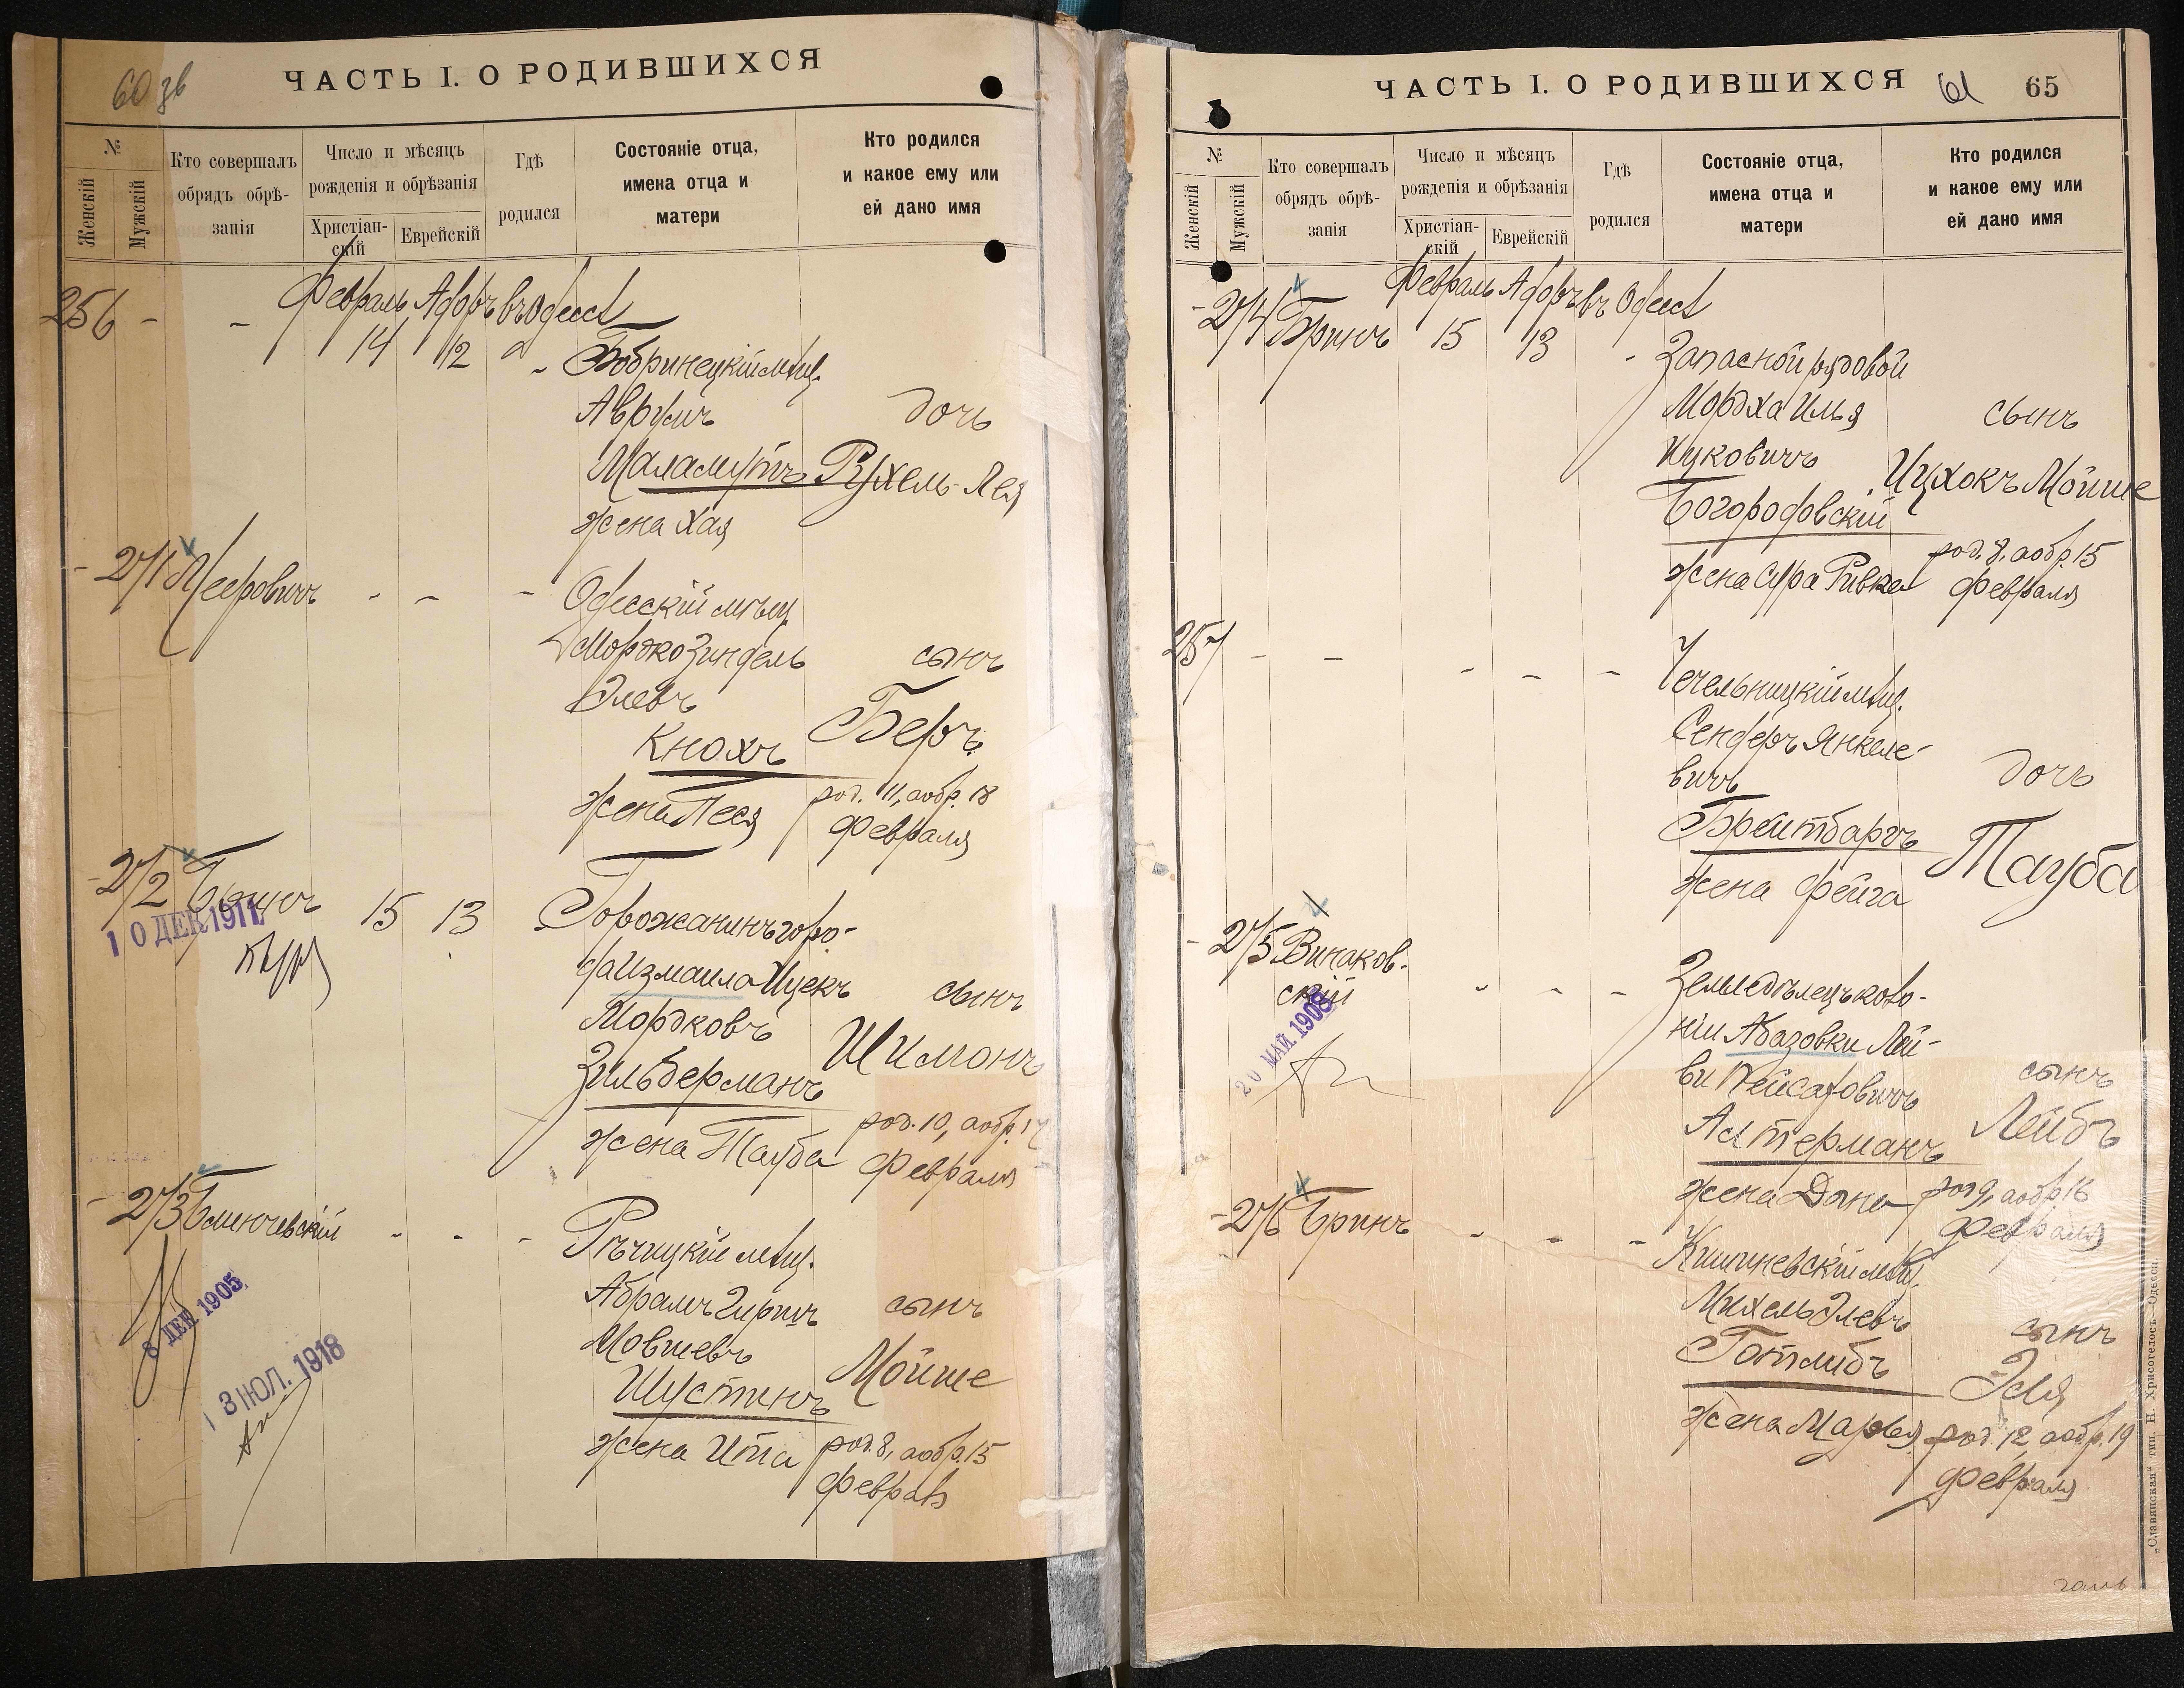 60 зв
ЧАСТЬ I. О РОДИВШИХСЯ
№
Женскій
Мужскій
Кто совершалъ
обрядъ обрѣ-
занія
Число и мѣсяцъ
рожденія и обрѣзанія
Христіан-
скій
Еврейскій
Гдѣ
родился
Состояніе отца,
имена отца и
матери
Кто родился
и какое ему или
ей дано имя
Февраль Адаръ въ Одессѣ
256 - - 14 12 - Бобринецкій мѣщ.
Аврумъ дочь
Маламутъ Рухель-Лея
жена Хая
- 271 Мееровичъ - - - Одесскій мѣщ.
Мордко Зиндель сынъ
Элевъ
Кнохъ Беръ
жена Песя род. 11, а обр. 18
февраля
- 272 15 13 Горожанинъ горо-
10 ДЕК 1911
да Измаила Ицекъ сынъ
Мордковъ Шимонъ
Зильберманъ
жена Тауба род. 10, а обр. 17
февраля
- 273 - - - Рѣчицкій мѣщ.
Абрамъ Гиршъ сынъ
8 ДЕК 1905
Мовшевъ Мойше
13 ІЮЛ. 1918
Шустинъ
жена Ита род. 8, а обр. 15
февраля
ЧАСТЬ I. О РОДИВШИХСЯ 61 65
№
Женскій
Мужскій
Кто совершалъ
обрядъ обрѣ-
занія
Число и мѣсяцъ
рожденія и обрѣзанія
Христіан-
скій
Еврейскій
Гдѣ
родился
Состояніе отца,
имена отца и
матери
Кто родился
и какое ему или
ей дано имя
Февраль Адаръ въ Одессѣ
- 274 Бринъ 15 13 - Запасной рядовой
Мордха Илья сынъ
Ицковичъ Ицхокъ Мойше
Богородовскій
род. 8, а обр. 15
жена Сура Ривка февраля
257 - - - - - Чечельницкій мѣщ.
Сендеръ Янкеле-
вичъ дочь
Брейтбартъ Тауба
жена Фейга
- 275 Винаков-
скій - - - Земледѣлецъ коло-
20 МАЙ 1908
ніи Абазовки Лей-
ви Пейсаховичъ сынъ
Астерманъ Лейбъ
жена род. 9, а обр. 16
февраля
- 276 Бринъ - - - Кишиневскій мѣщ.
Михель Элевъ сынъ
Готлибъ Эля
жена Марья род. 12, а обр. 19
февраля
„Славянская“ тип. Н. Хрисогелосъ—Одесса.